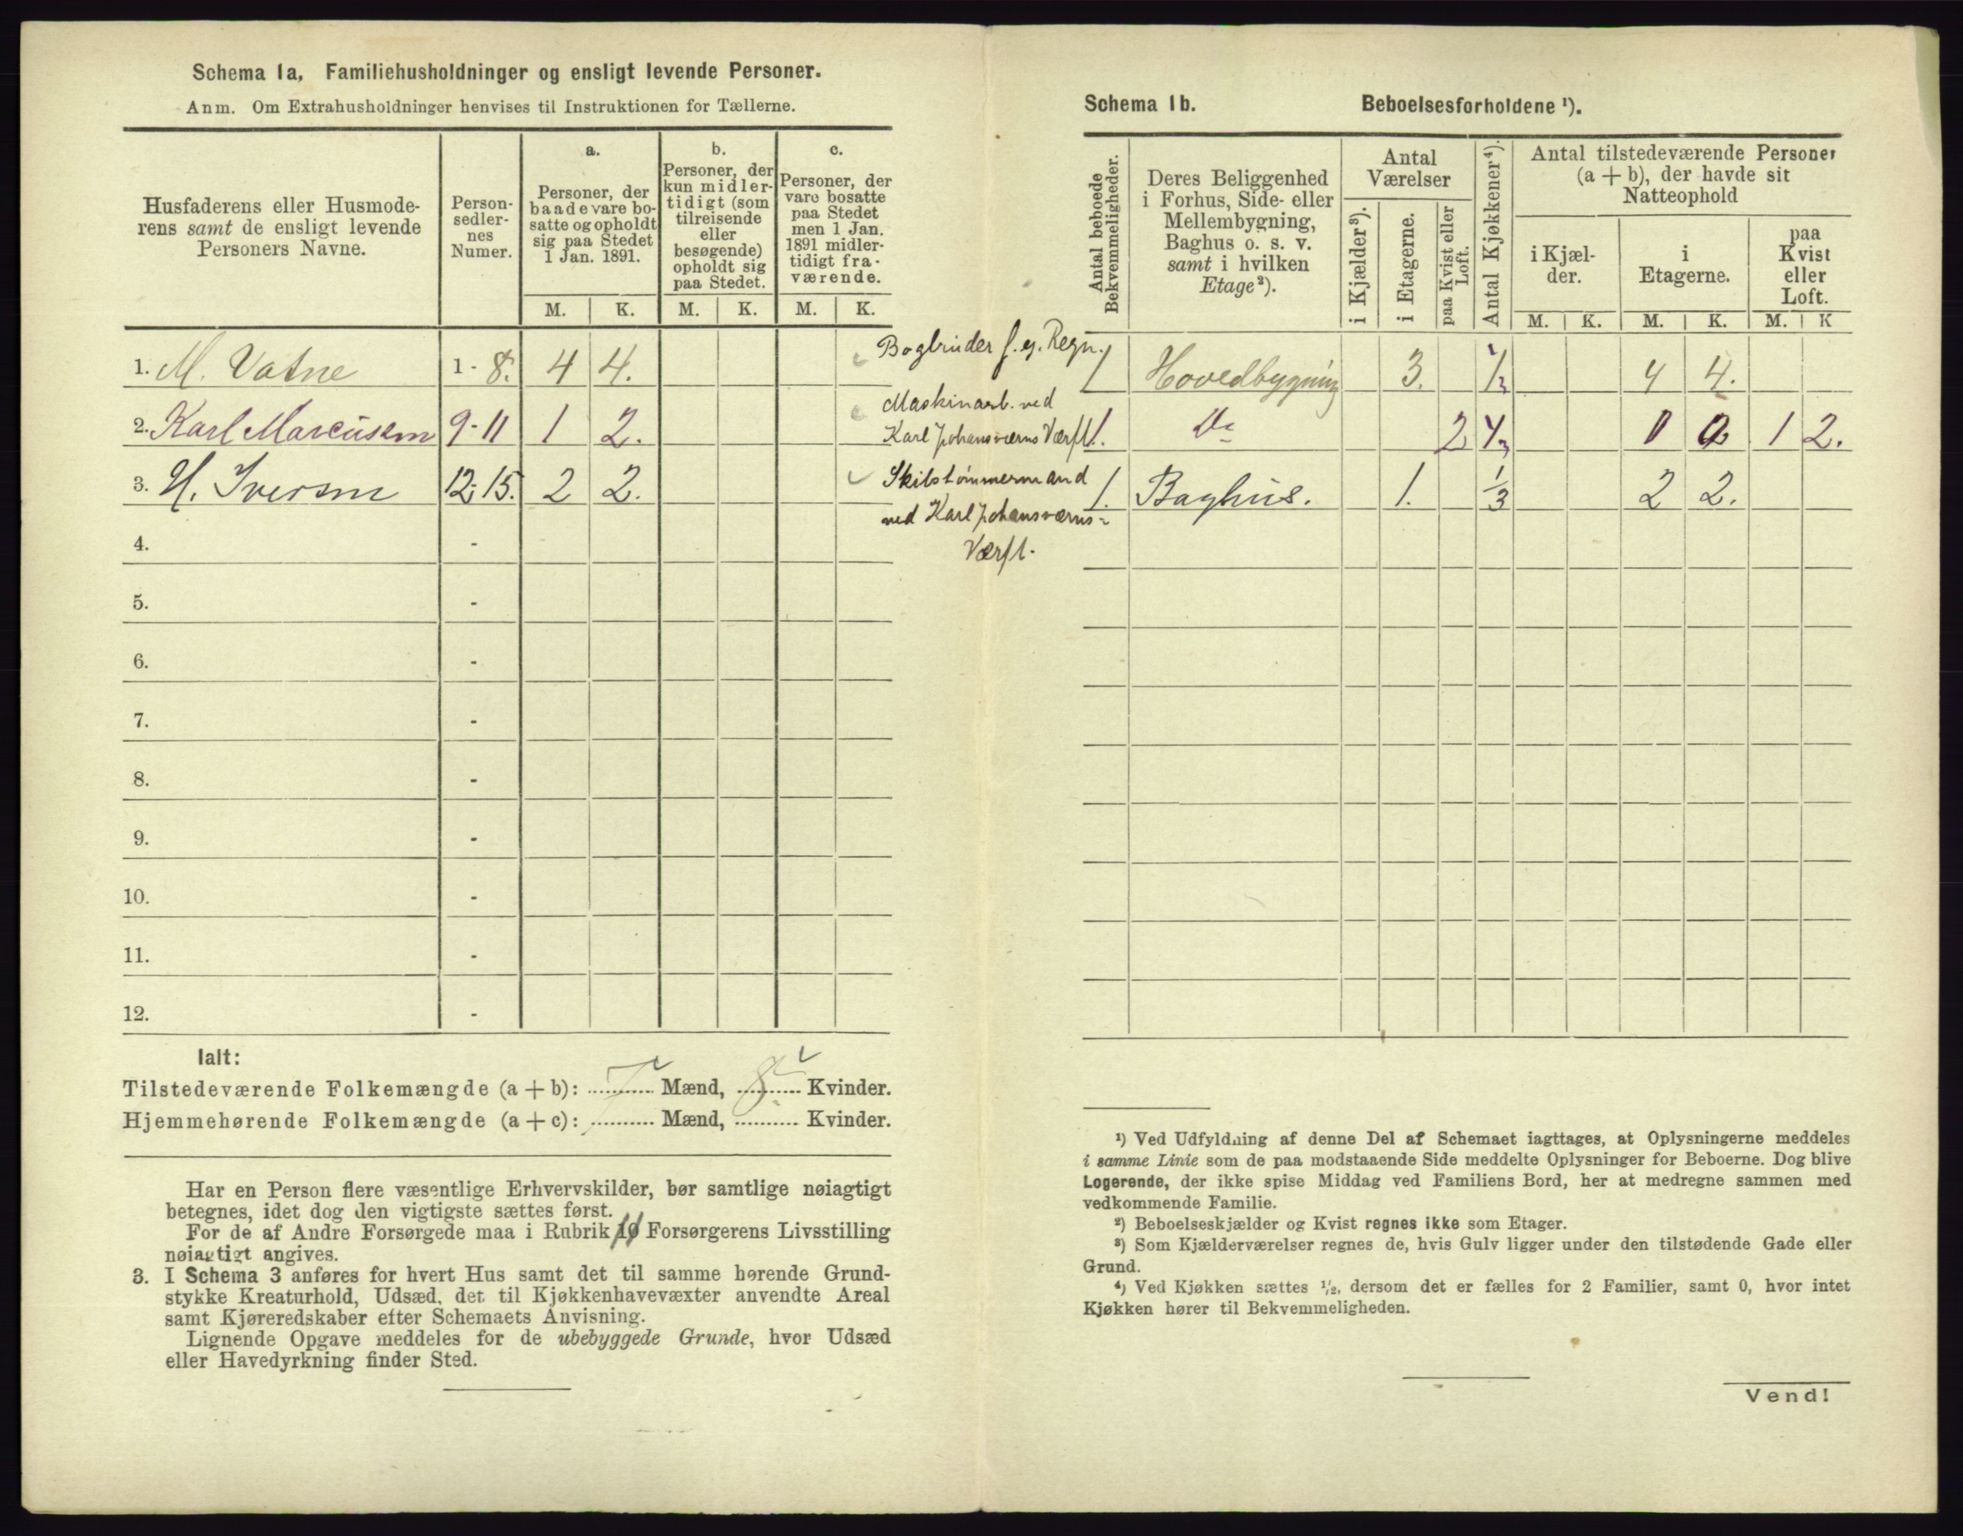 Schema 1a, Familiehusholdninger og ensligt levende Personer.
Anm. Om Extrahusholdninger henvises til Instruktionen for Tællerne.
Husfaderens eller Husmode-
rens samt de ensligt levende
Personers Navne.
Person-
sedler-
nes
Numer.
a.
Personer, der
baade vare bo-
satte og opholdt
sig paa Stedet
1 Jan. 1891.
b.
Personer, der
kun midler-
tidigt (som
tilreisende
eller
besøgende)
opholdt sig
paa Stedet.
c.
Personer, der
vare bosatte
paa Stedet
men 1 Jan.
1891 midler-
tidigt fra-
værende.
M. K. M. K. M. K.
1. M. Vatne 1 - 8. 4 4. Bogbinder f. eg. Regn.
2. Karl Marcussen 9 - 11 1 2. Maskinarb. ved
Karl Johansværns Værft.
3. H. Iversen 12 - 15. 2 2. Skibstømmermand
ved Karl Johansværns
Værft.
4. -
5. -
6. -
7. -
8. -
9. -
10. -
11. -
12. -
Ialt:
Tilstedeværende Folkemængde (a + b): 7 Mænd, 8 Kvinder.
Hjemmehørende Folkemængde (a + c): Mænd, Kvinder.
Har en Person flere væsentlige Erhvervskilder, bør samtlige nøiagtigt
betegnes, idet dog den vigtigste sættes først.
For de af Andre Forsørgede maa i Rubrik 11 Forsørgerens Livsstilling
nøiagtigt angives.
3. I Schema 3 anføres for hvert Hus samt det til samme hørende Grund-
stykke Kreaturhold, Udsæd, det til Kjøkkenhavevæxter anvendte Areal
samt Kjøreredskaber efter Schemaets Anvisning.
Lignende Opgave meddeles for de ubebyggede Grunde, hvor Udsæd
eller Havedyrkning finder Sted.
Schema 1b. Beboelsesforholdene ¹).
Antal beboede
Bekvemmeligheder.
Deres Beliggenhed
i Forhus, Side- eller
Mellembygning,
Baghus o. s. v.
samt i hvilken
Etage²).
Antal
Værelser
i Kjælder ³).
i Etagerne.
paa Kvist eller
Loft.
Antal Kjøkkener ⁴).
Antal tilstedeværende Personer
(a + b), der havde sit
Natteophold
i Kjæl-
der.
i
Etagerne.
paa
Kvist
eller
Loft.
M. K. M. K. M. K
1 Hovedbygning 3. 1/3 4 4.
1. Do 2 1/3 0 0 1 2.
1. Baghus. 1. 1/3 2 2.
¹) Ved Udfyldning af denne Del af Schemaet iagttages, at Oplysningerne meddeles
i samme Linie som de paa modstaaende Side meddelte Oplysninger for Beboerne. Dog blive
Logerende, der ikke spise Middag ved Familiens Bord, her at medregne sammen med
vedkommende Familie.
²) Beboelseskjælder og Kvist regnes ikke som Etager.
³) Som Kjælderværelser regnes de, hvis Gulv ligger under den tilstødende Gade eller
Grund.
⁴) Ved Kjøkken sættes ¹/₂, dersom det er fælles for 2 Familier, samt 0, hvor intet
Kjøkken hører til Bekvemmeligheden.
Vend!